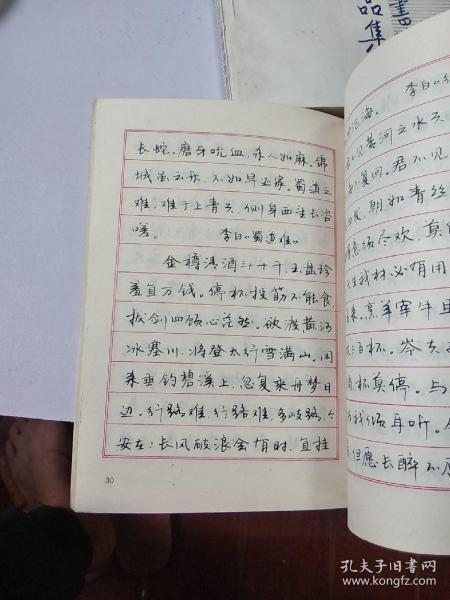 書
品集
长蛇。磨牙吮血,杀人如麻。锦
城虽云乐,不如早还家。蜀道之
难,难于上青天,侧身西望长咨
嗟。 李白《蜀道难》
金樽清酒斗十千,玉盘珍
羞直万钱。停杯投筯不能食,
拔剑四顾心茫然。欲渡黄河
冰塞川,将登太行雪满山。闲
来垂钓碧溪上,忽复乘舟梦日
边。行路难,行路难,多岐路,今
安在:长风破浪会有时,直挂
30
沧海。 李白《
不见黄河之水天
不复回。君不见
发,朝如青丝
意须尽欢,莫
生我材必有用
来。烹羊宰牛且
三百杯。岑夫
杯莫停。与
为我倾耳听。
但愿长醉不
孔夫子旧书网
www.kongfz.com